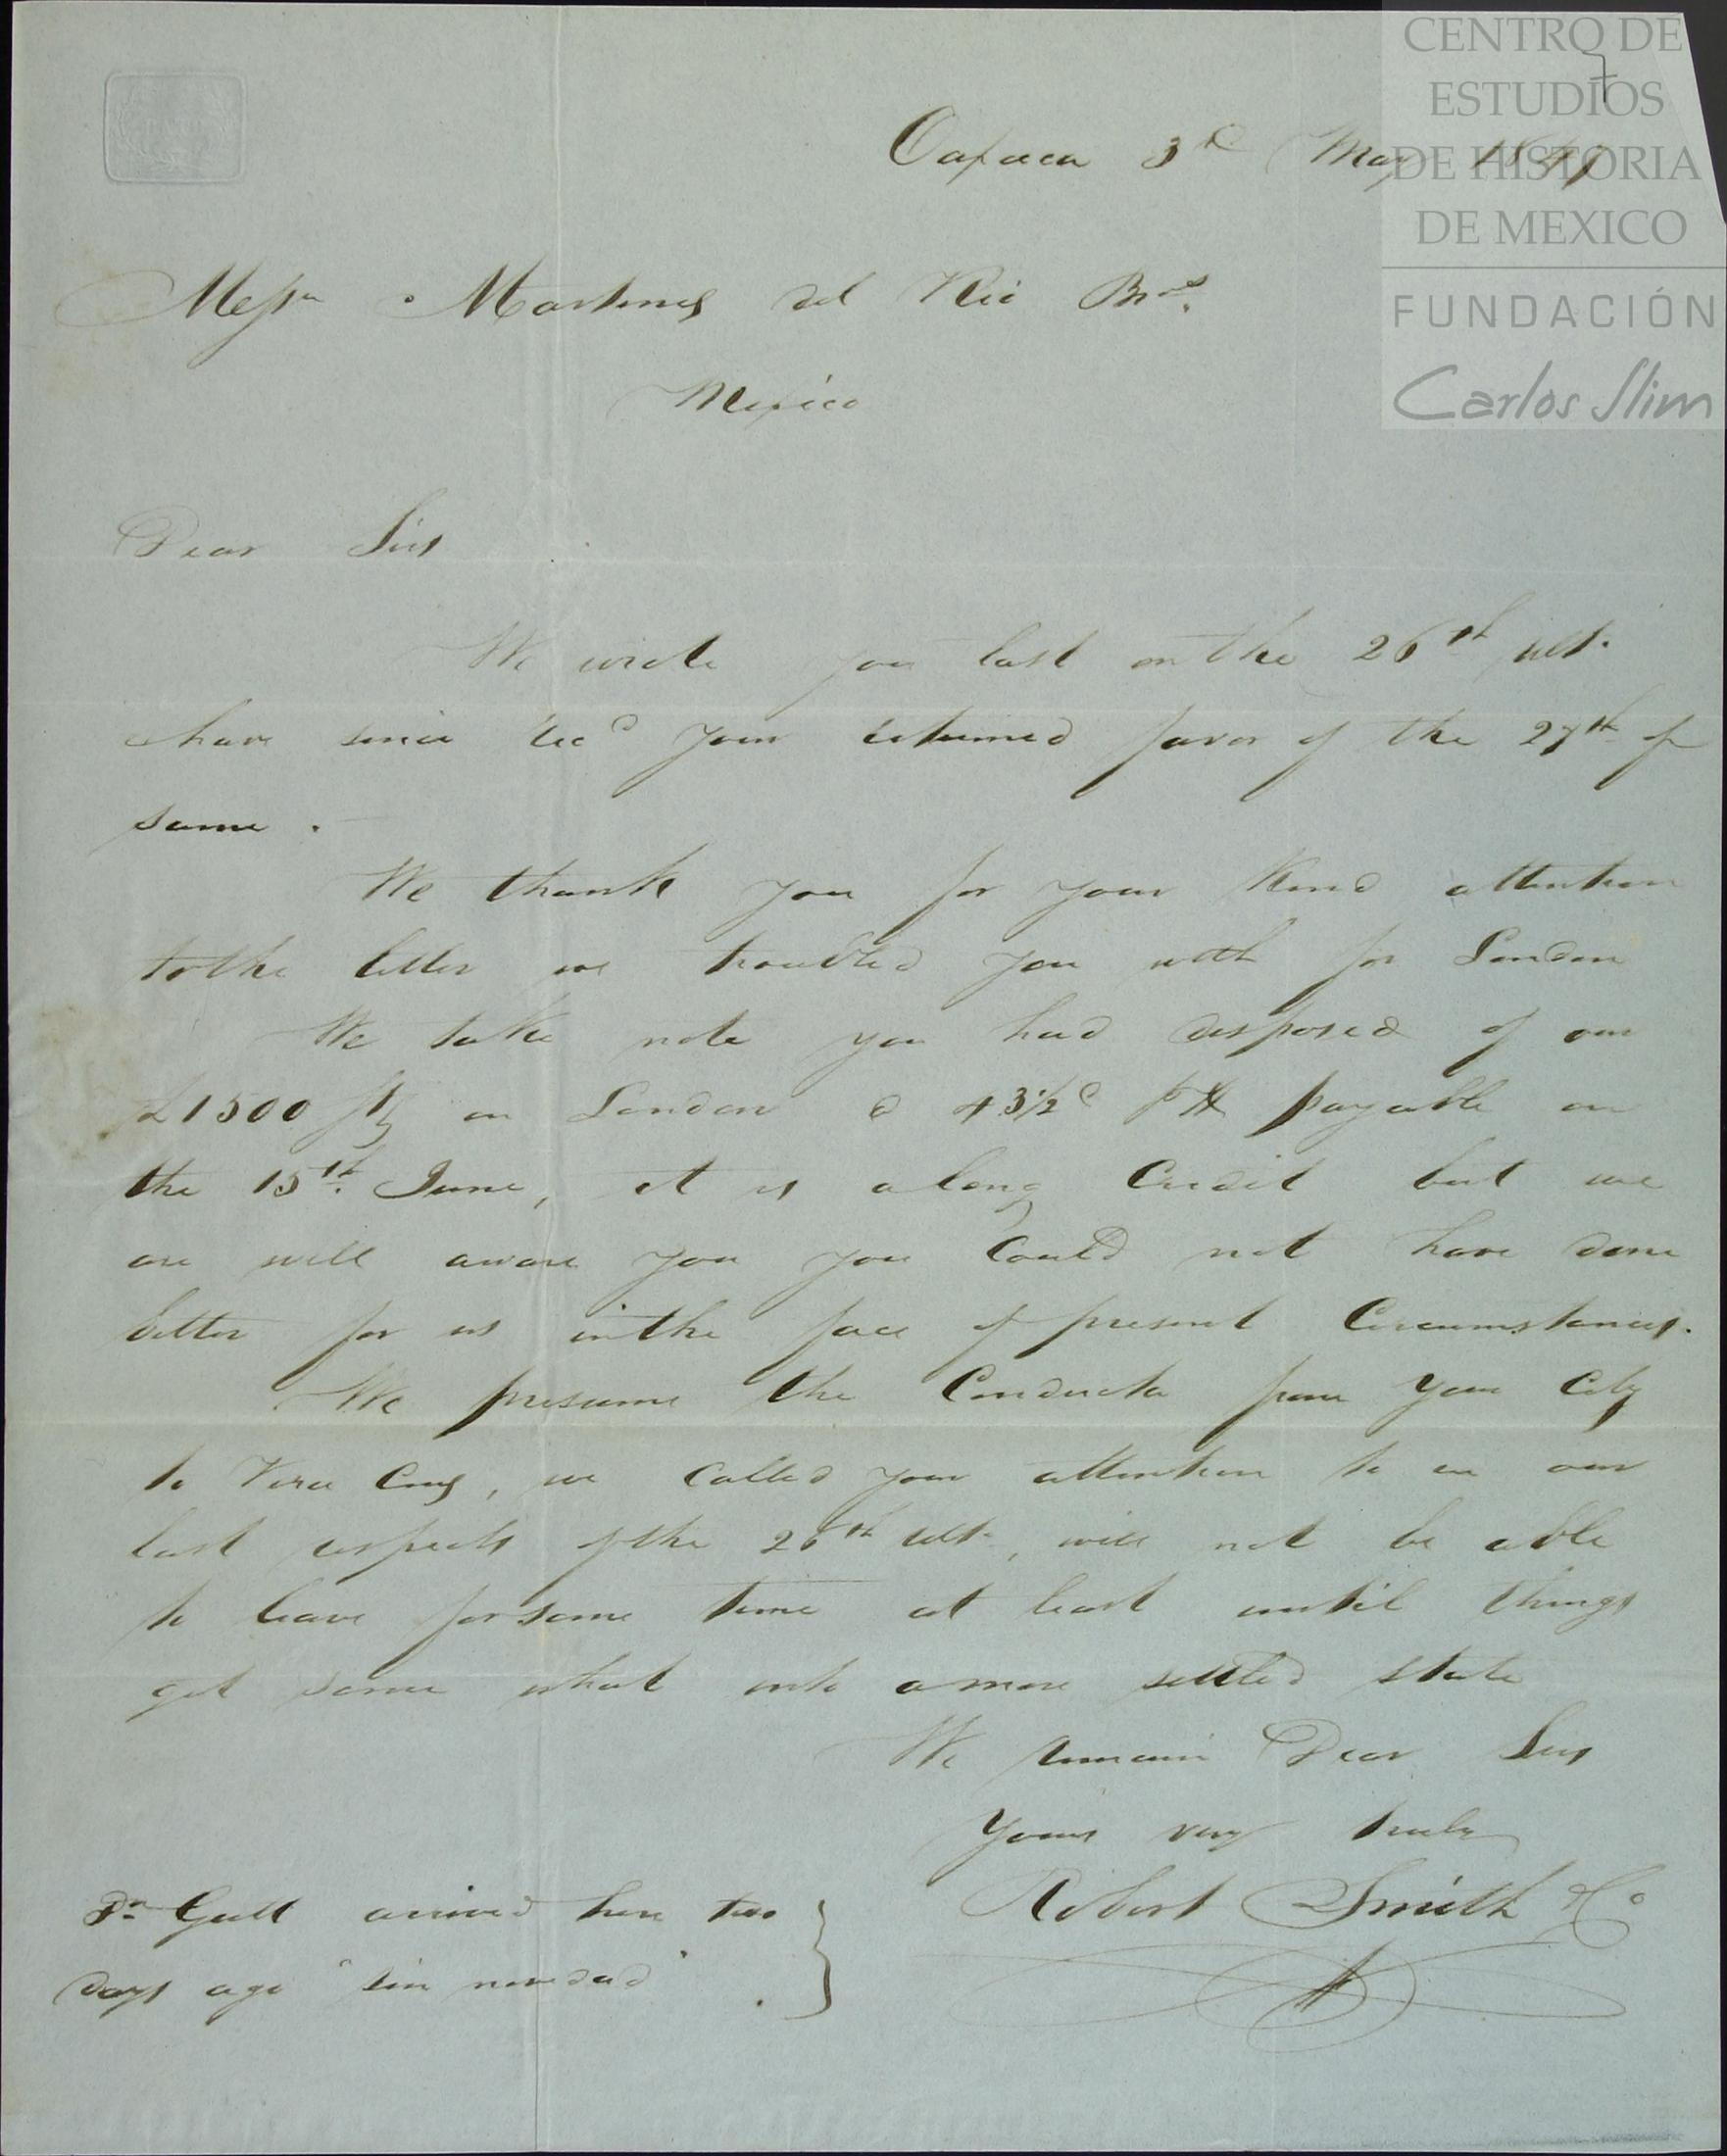 CENTRO DE
ESTUDIOS
DE HISTORIA
DE MEXICO
FUNDACIÓN
Carlos Slim
7
Oaxaca 3d May
Messrs Martinez del Rio Bros.
Mexico
Dear Sirs
We wrote you last on the 26th ult.
have since recd your esteemed favor of the 27th of
same.
We thank you for your kind attention
to the letter we troubled you with for London
We take note you had disposed of our
£1500 Stg on London @ 43½d p $ payable on
the 15th. June, it is a long Credit but we
are well aware you you Could not have done
better for us in the face of present Circumstances.
We presume the Conducta from your City
to Vera Cruz, we Called your attention to in our
last respects of the 26th ult., will not be able
to leave for some time at least until things
get some what into a more settled state
We remain Dear Sirs
Yours very truly
Robert Smith & Co
Dn Gutt arrived here two
days ago "sin novedad".